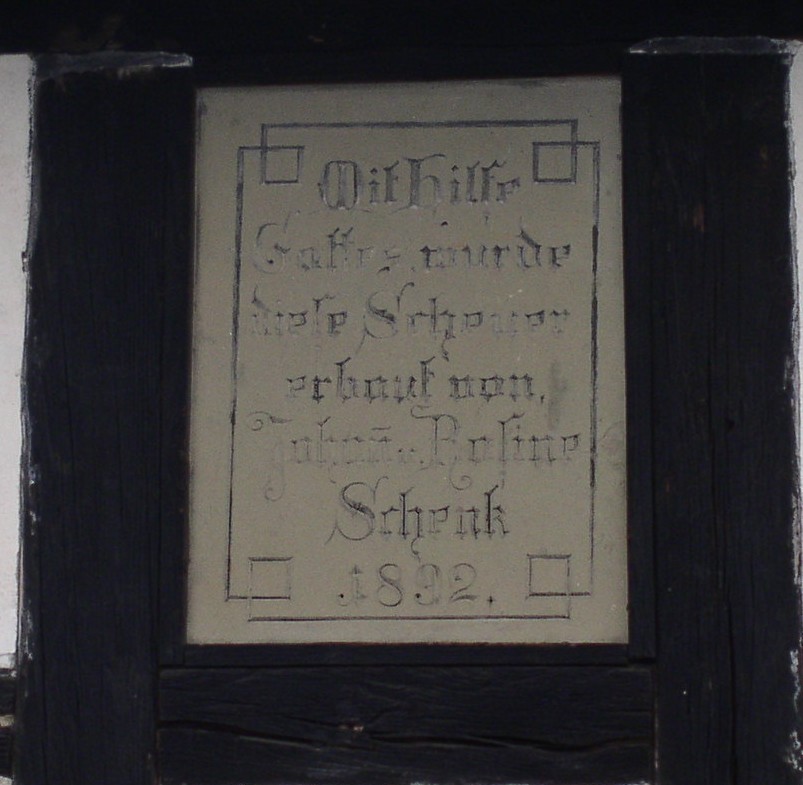 Mit Hilfe
Gottes wurde
diese Scheuer
erbaut von
Johan̄ u. Rosine
Schenk
1892.